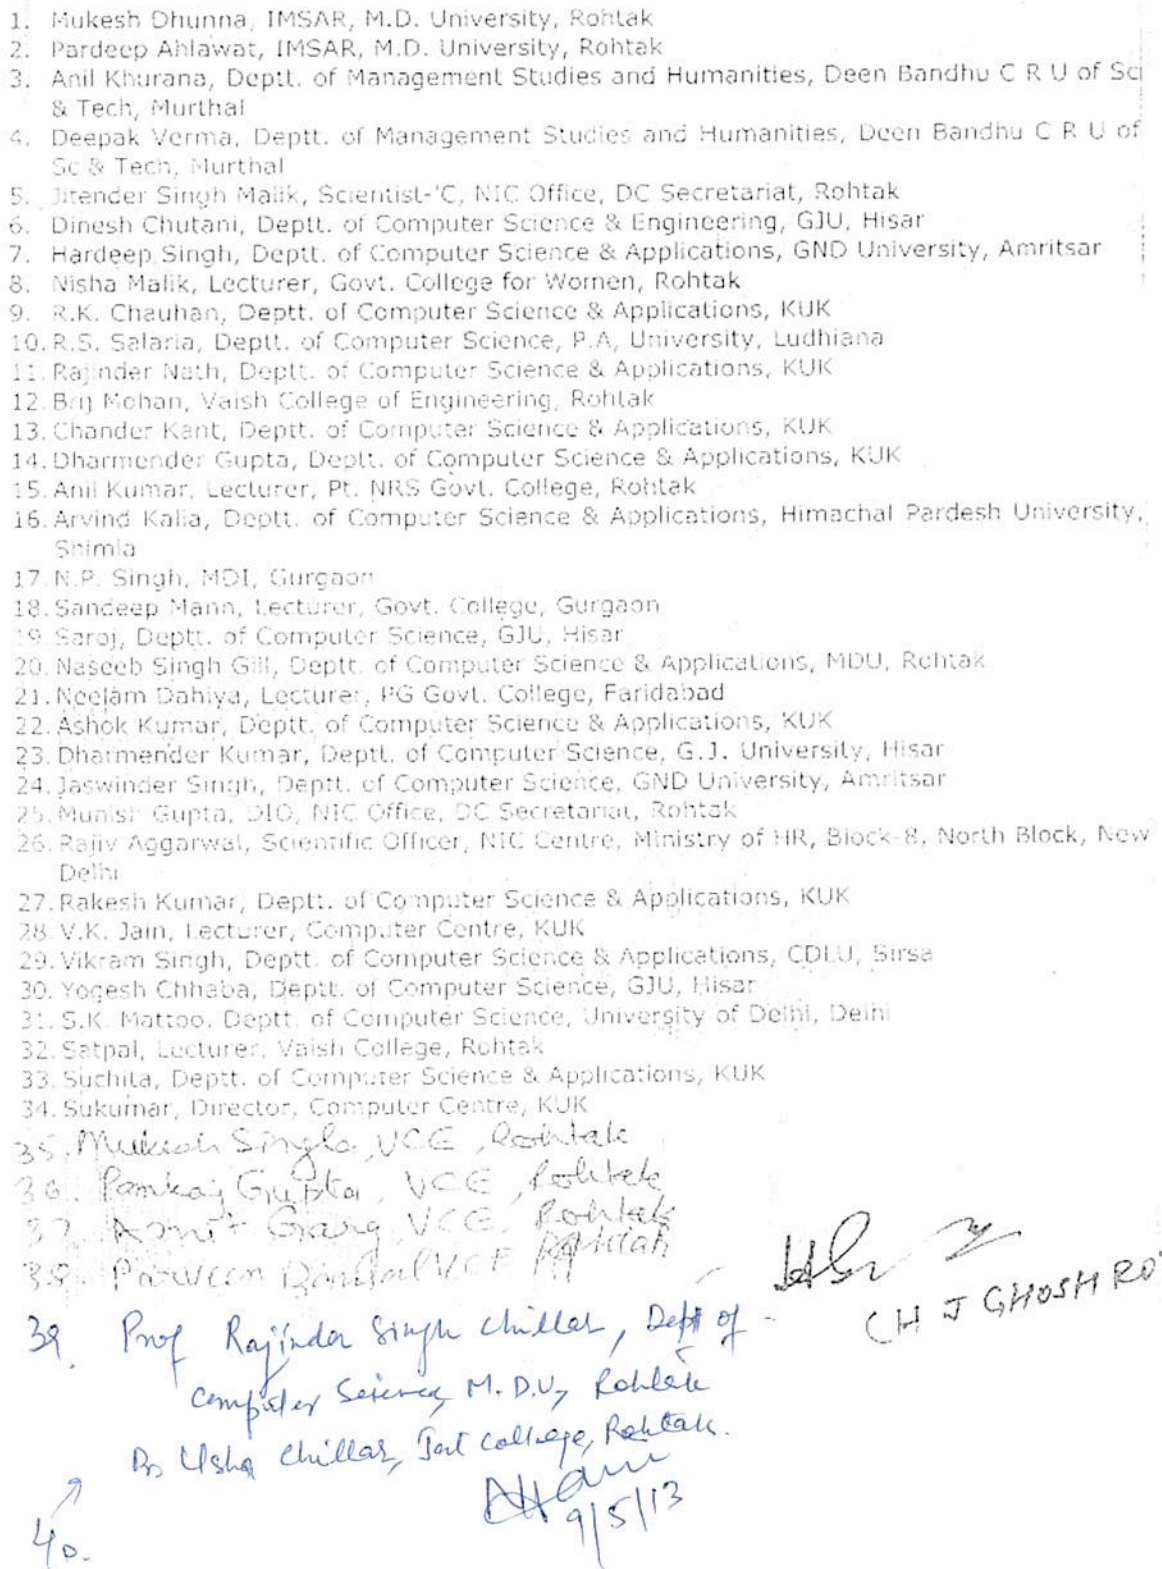 1. Mukesh Dhunna, IMSAR, M.D. University, Rohtak
2. Pardeep Ahlawat, IMSAR, M.D. University, Rohtak
3. Anil Khurana, Deptt. of Management Studies and Humanities, Deen Bandhu C R U of Sci
& Tech, Murthal
4. Deepak Verma, Deptt. of Management Studies and Humanities, Deen Bandhu C R U of
Sc & Tech, Murthal
5. Jitender Singh Malik, Scientist-'C, NIC Office, DC Secretariat, Rohtak
6. Dinesh Chutani, Deptt. of Computer Science & Engineering, GJU, Hisar
7. Hardeep Singh, Deptt. of Computer Science & Applications, GND University, Amritsar
8. Nisha Malik, Lecturer, Govt. College for Women, Rohtak
9. R.K. Chauhan, Deptt. of Computer Science & Applications, KUK
10. R.S. Salaria, Deptt. of Computer Science, P.A, University, Ludhiana
11. Rajinder Nath, Deptt. of Computer Science & Applications, KUK
12. Brij Mohan, Vaish College of Engineering, Rohtak
13. Chander Kant, Deptt. of Computer Science & Applications, KUK
14. Dharmender Gupta, Deptt. of Computer Science & Applications, KUK
15. Anil Kumar, Lecturer, Pt. NRS Govt. College, Rohtak
16. Arvind Kalia, Deptt. of Computer Science & Applications, Himachal Pardesh University,
Shimla
17. N.P. Singh, MDI, Gurgaon
18. Sandeep Mann, Lecturer, Govt. College, Gurgaon
19. Saroj, Deptt. of Computer Science, GJU, Hisar
20. Naseeb Singh Gill, Deptt. of Computer Science & Applications, MDU, Rohtak
21. Neelam Dahiya, Lecturer, PG Govt. College, Faridabad
22. Ashok Kumar, Deptt. of Computer Science & Applications, KUK
23. Dharmender Kumar, Deptt. of Computer Science, G.J. University, Hisar
24. Jaswinder Singh, Deptt. of Computer Science, GND University, Amritsar
25. Munish Gupta, DIO, NIC Office, DC Secretariat, Rohtak
26. Rajiv Aggarwal, Scientific Officer, NIC Centre, Ministry of HR, Block-8, North Block, New
Delhi
27. Rakesh Kumar, Deptt. of Computer Science & Applications, KUK
28. V.K. Jain, Lecturer, Computer Centre, KUK
29. Vikram Singh, Deptt. of Computer Science & Applications, CDLU, Sirsa
30. Yogesh Chhaba, Deptt. of Computer Science, GJU, Hisar
31. S.K. Mattoo, Deptt. of Computer Science, University of Delhi, Delhi
32. Satpal, Lecturer, Vaish College, Rohtak
33. Suchita, Deptt. of Computer Science & Applications, KUK
34. Sukumar, Director, Computer Centre, KUK
35. Mukesh Singla, VCE, Rohtak
36. Pankaj Gupta, VCE, Rohtak
37. Asmit Garg, VCE, Rohtak
38. Parveen Bansal VCE Rohtak
CH J GHOSH RO
39. Prof Rajinder Singh Chillar, Deptt of
Computer Science, M.D.U, Rohtak
Dr Usha Chillar, Jat College, Rohtak.
9/5/13
40.